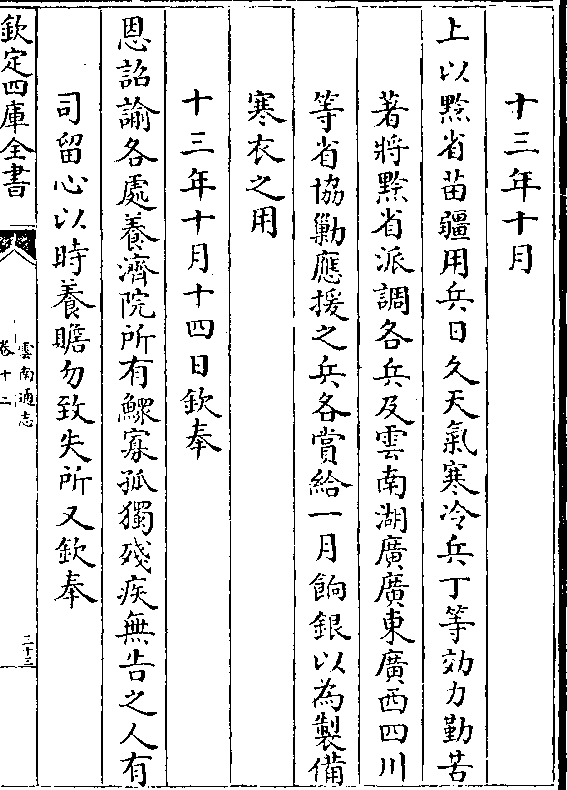 十三年十月
上以黔省苗疆用兵日久天氣寒冷兵丁等効力勤苦
著將黔省派調各兵及雲南湖廣廣東廣西四川
等省協勦應援之兵各賞給一月餉銀以為製備
寒衣之用
十三年十月十四日欽奉
恩詔諭各處養濟院所有鰥寡孤獨殘疾無告之人有
司留心以時養贍勿致失所又欽奉
欽定四庫全書
雲南通志
卷十二
二十三